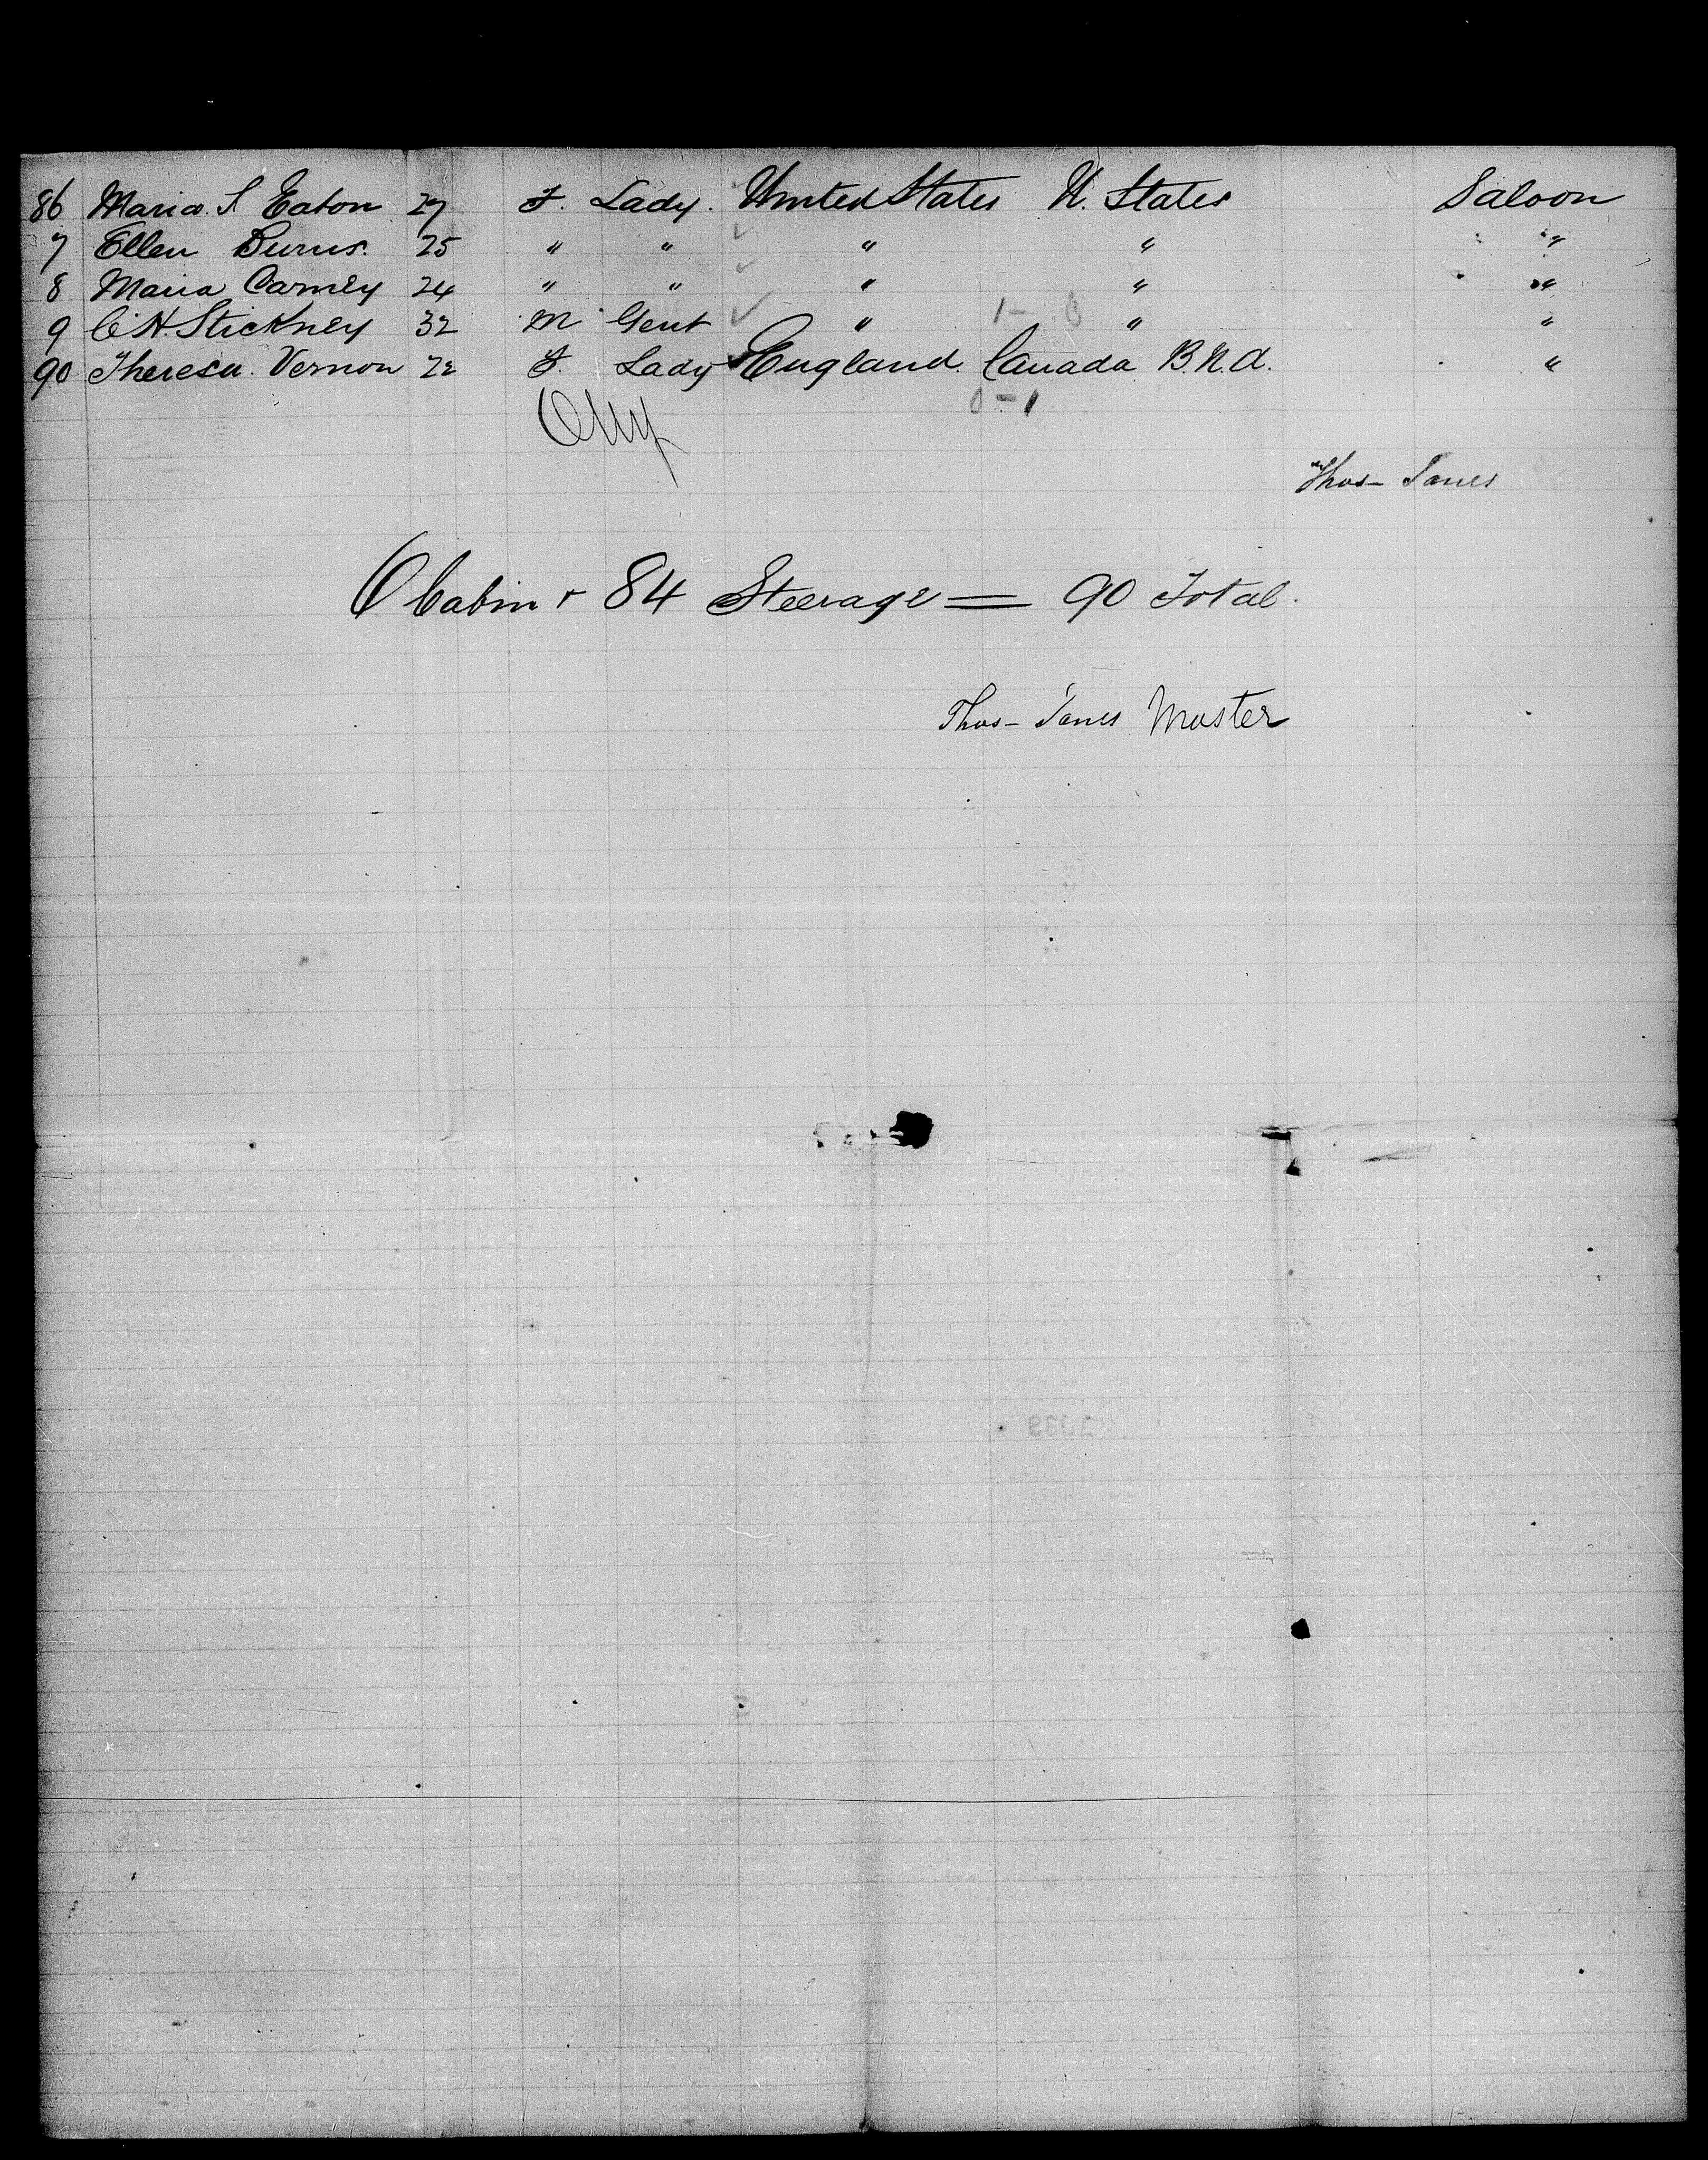 86 Maria S Eaton 27 F. Lady. United States U. States Saloon
7 Ellen Burns. 25 " " " " "
8 Maria Carney 24 " " " " "
9 C. H. Stickney 32 M Gent " " "
90 Theresa Vernon 22 F. Lady England. Canada B.N.A. "
0-1
Thos- Jones
6 Cabin + 84 Steerage = 90 Total.
Thos- Jones Master